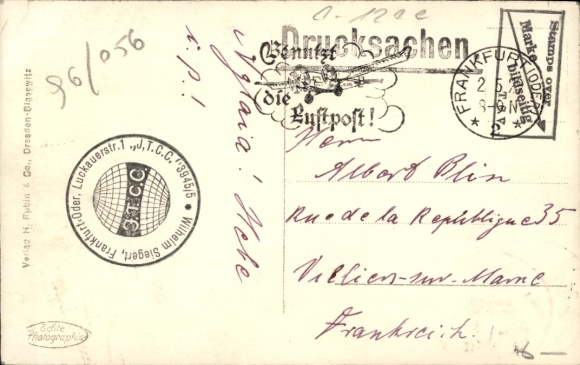 96/056
Drucksachen
Benutzt
die
Luftpost!
FRANKFURT (ODER)
2.5.
8-9N
* 2 *
Stamps over
Marke bildseitig
TCTV
Herrn
Albert Blin
Rue de la République 35
Villiers-sur-Marne
Frankreich.
i. p.!
Wilhelm Siegerl, Frankfurt-Oder, Luckauerstr.1 „J.T.C.C. 3945/5 *
3.T.CC
Verlag H. Rubin & Co., Dresden-Blasewitz
Echte
Photographie